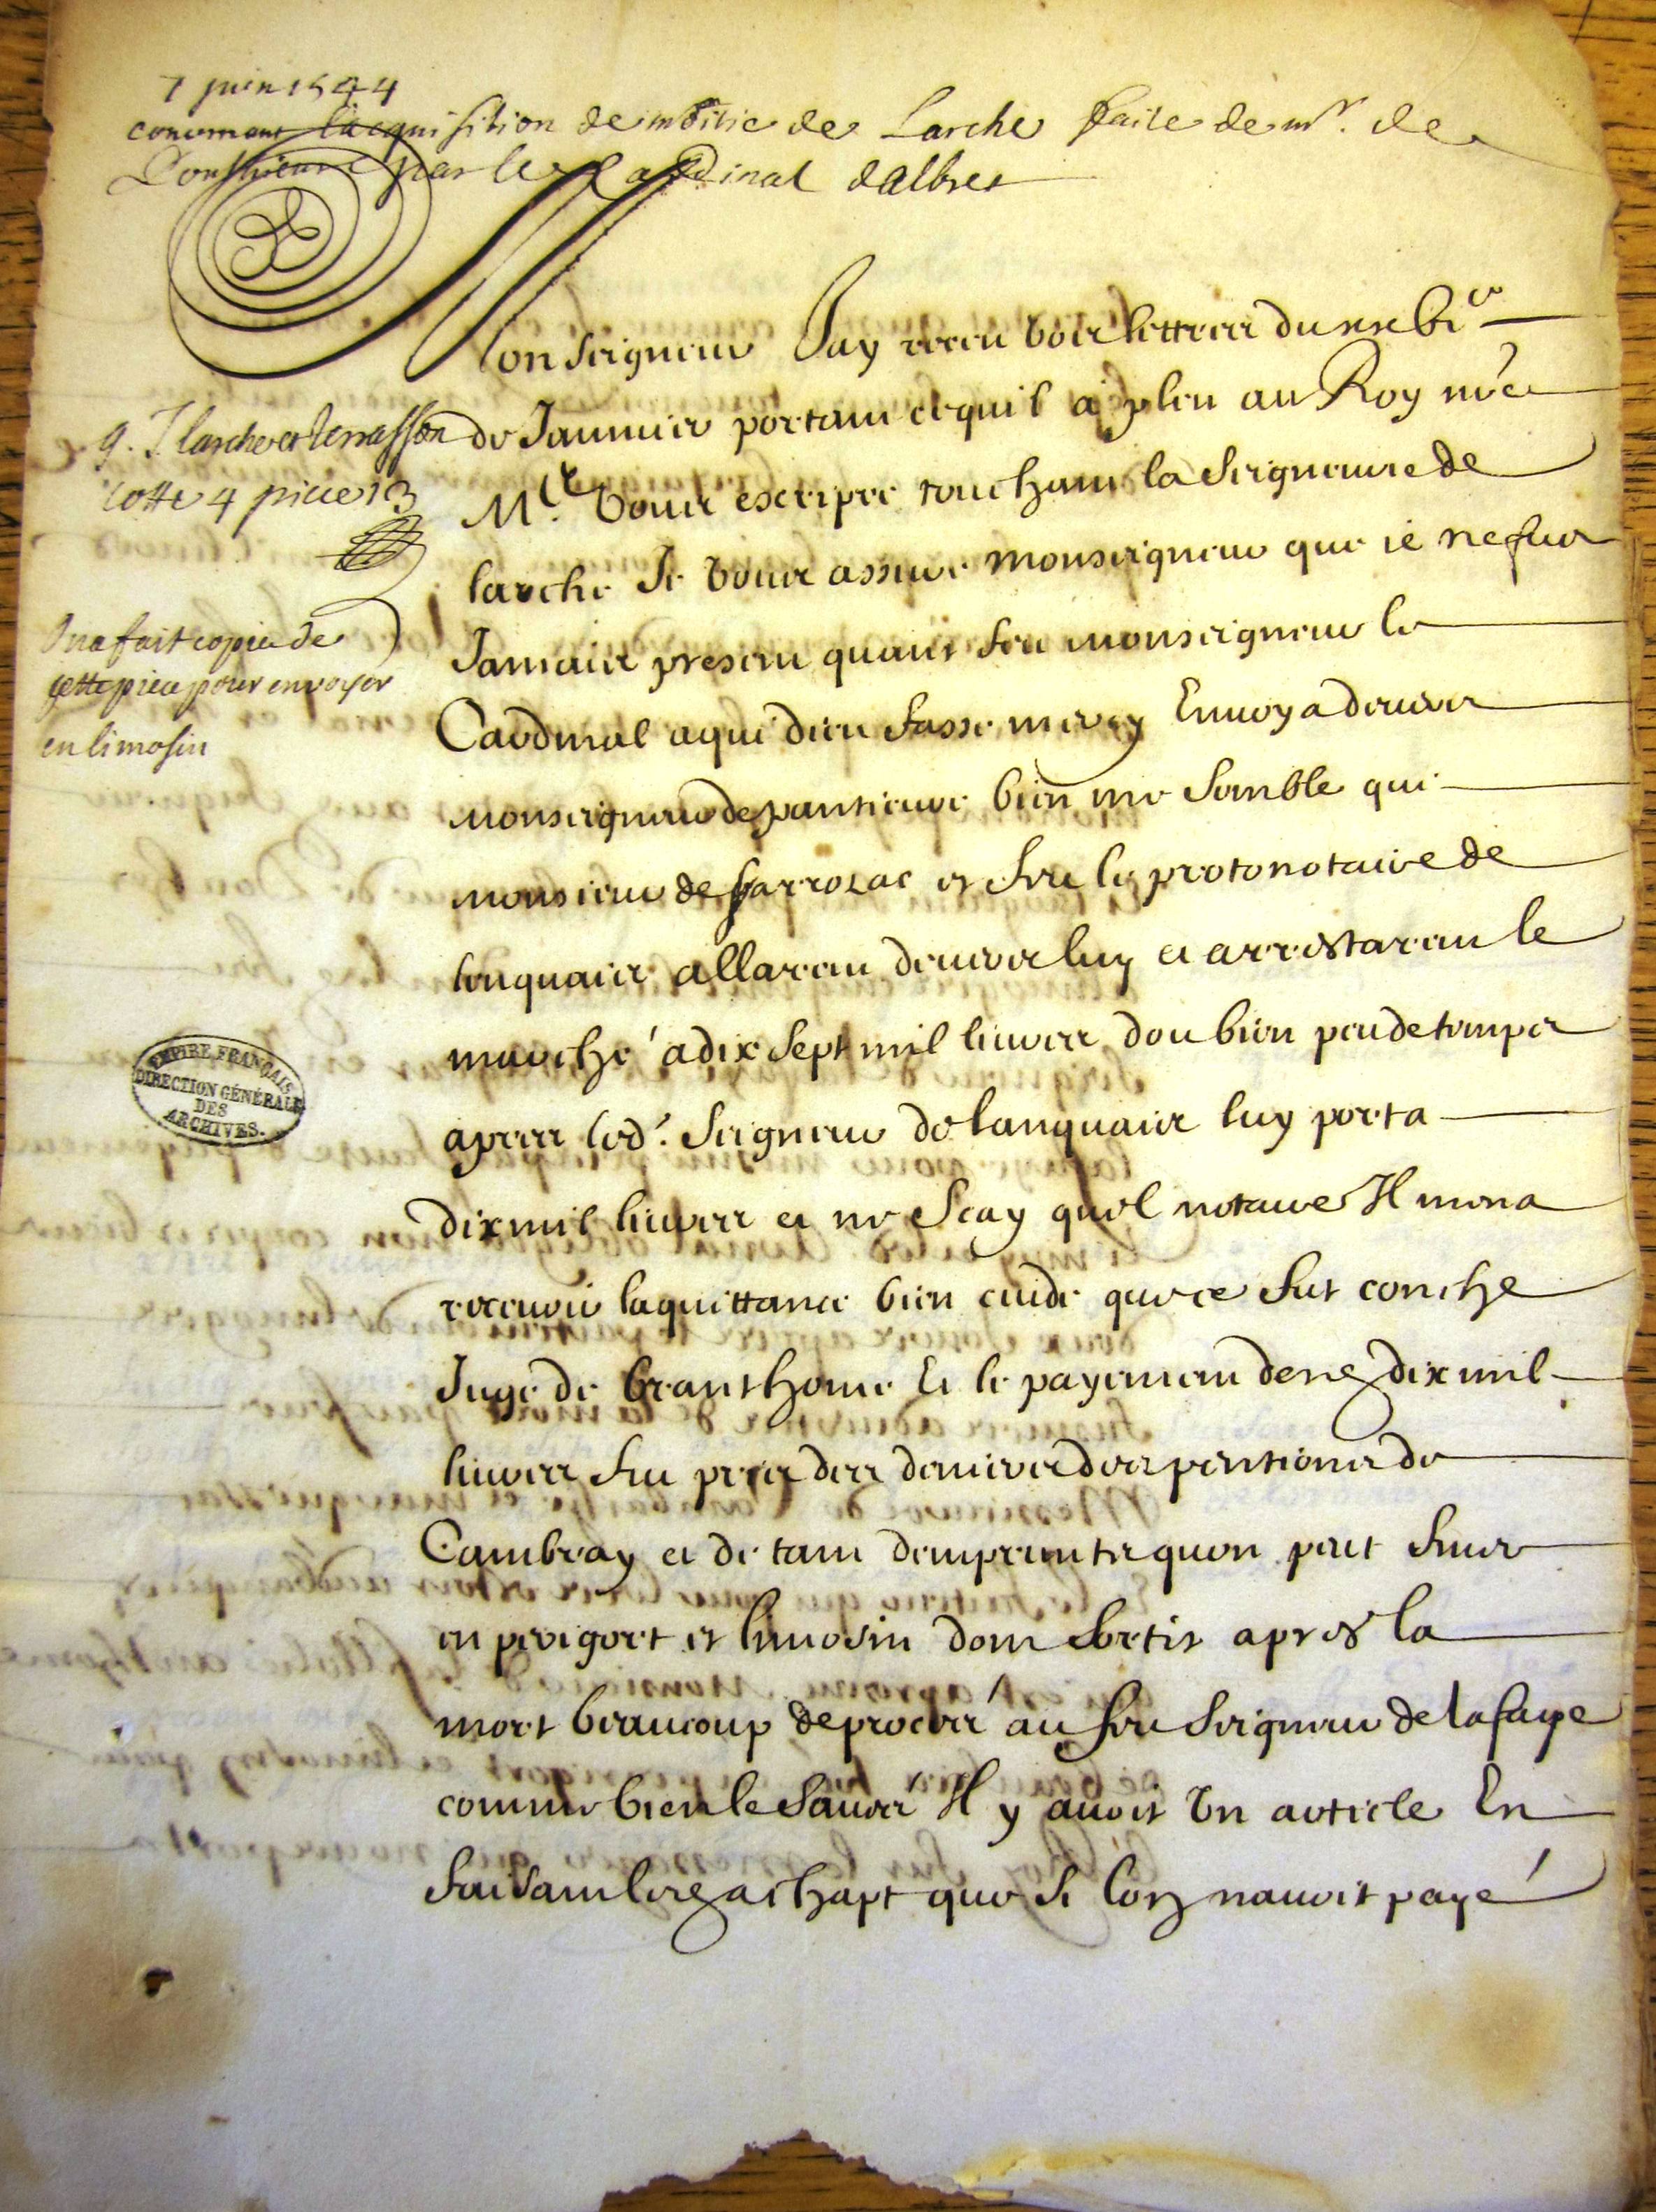 7 juin 1544
concernant lacquisition de moitie de Larche faite de mr. de
Ponthieure par le Cardinal dalbret
Monseigneur Jay receu voz lettres du
de Januier portant ce quil a pleu au Roy nre
Mre. vous escripre touchant la Seigneurie de
larche Je vous assure monseigneur que ie ne fus
Jamais present quant feu monseigneur le
Cardinal a qui dieu fasse mercy Enuoya deuers
monseigneur de pantieure bien me semble que
monsieur de et feu le protonotaire de
lenquais allarent deuers luy et arrestarent le
marche a dix sept mil liures dou bien peu de temps
apres led. Seigneur de lanquais luy porta
dix mil liures et ne scay quel notaire Il mena
receuoir la quittance bien cuide que ce fut conche
Juge de branthome Et le payement desd dix mil
liures fut pris des deniers des pentions de
Cambray et de tant dempruntz quon peut finer
en perigort et limosin dont sortit apres la
mort beaucoup de proces au feu Seigneur de la faye
comme bien le sauez Il y auoit vn article En
faisant led achapt que si lon nauoit payé
g. I. larche et terrasson
cotte 4 piece 13
On a fait copie de
cette piece pour envoyer
en limosin
EMPIRE FRANÇAIS
DIRECTION GÉNÉRALE
DES
ARCHIVES.